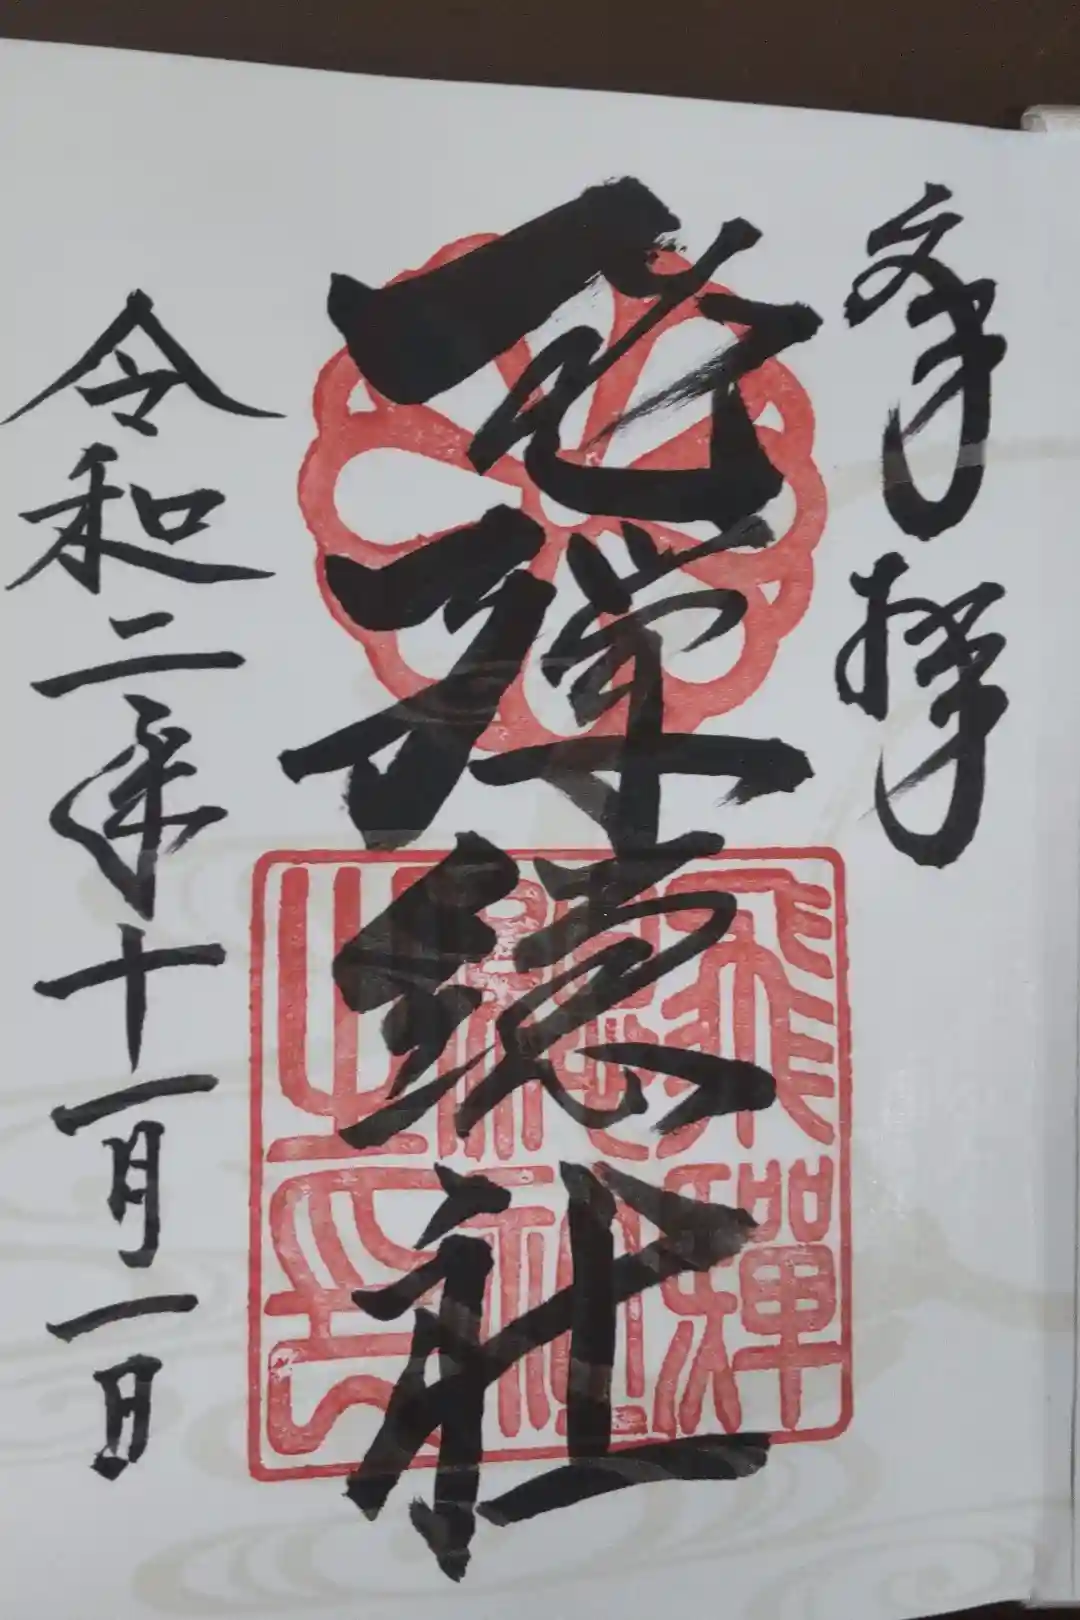 奉拝
飛騨総社
飛騨
總社
之印
令和二年十一月一日